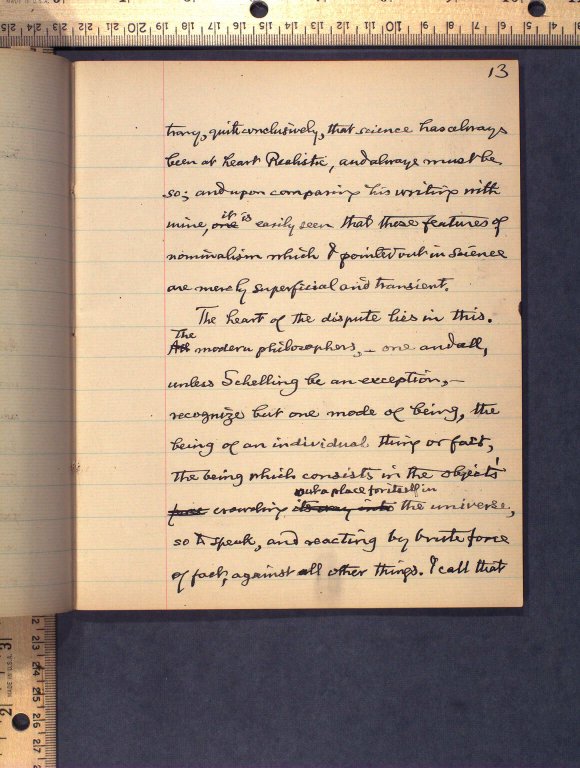 13
trary, quite conclusively, that science has always
been at heart Realistic, and always must be
so; and upon comparing his writing with
mine, one it is easily seen that these features of
nominalism which I pointed out in science
are merely superficial and transient.
The heart of the dispute lies in this.
The
All modern philosophers, – one and all,
unless Schelling be an exception, –
recognize but one mode of being, the
being of an individual thing or fact,
the being which consists in the object's
out a place for itself in
crowding its way into the universe,
so to speak, and reacting by brute force
of fact, against all other things. I call that